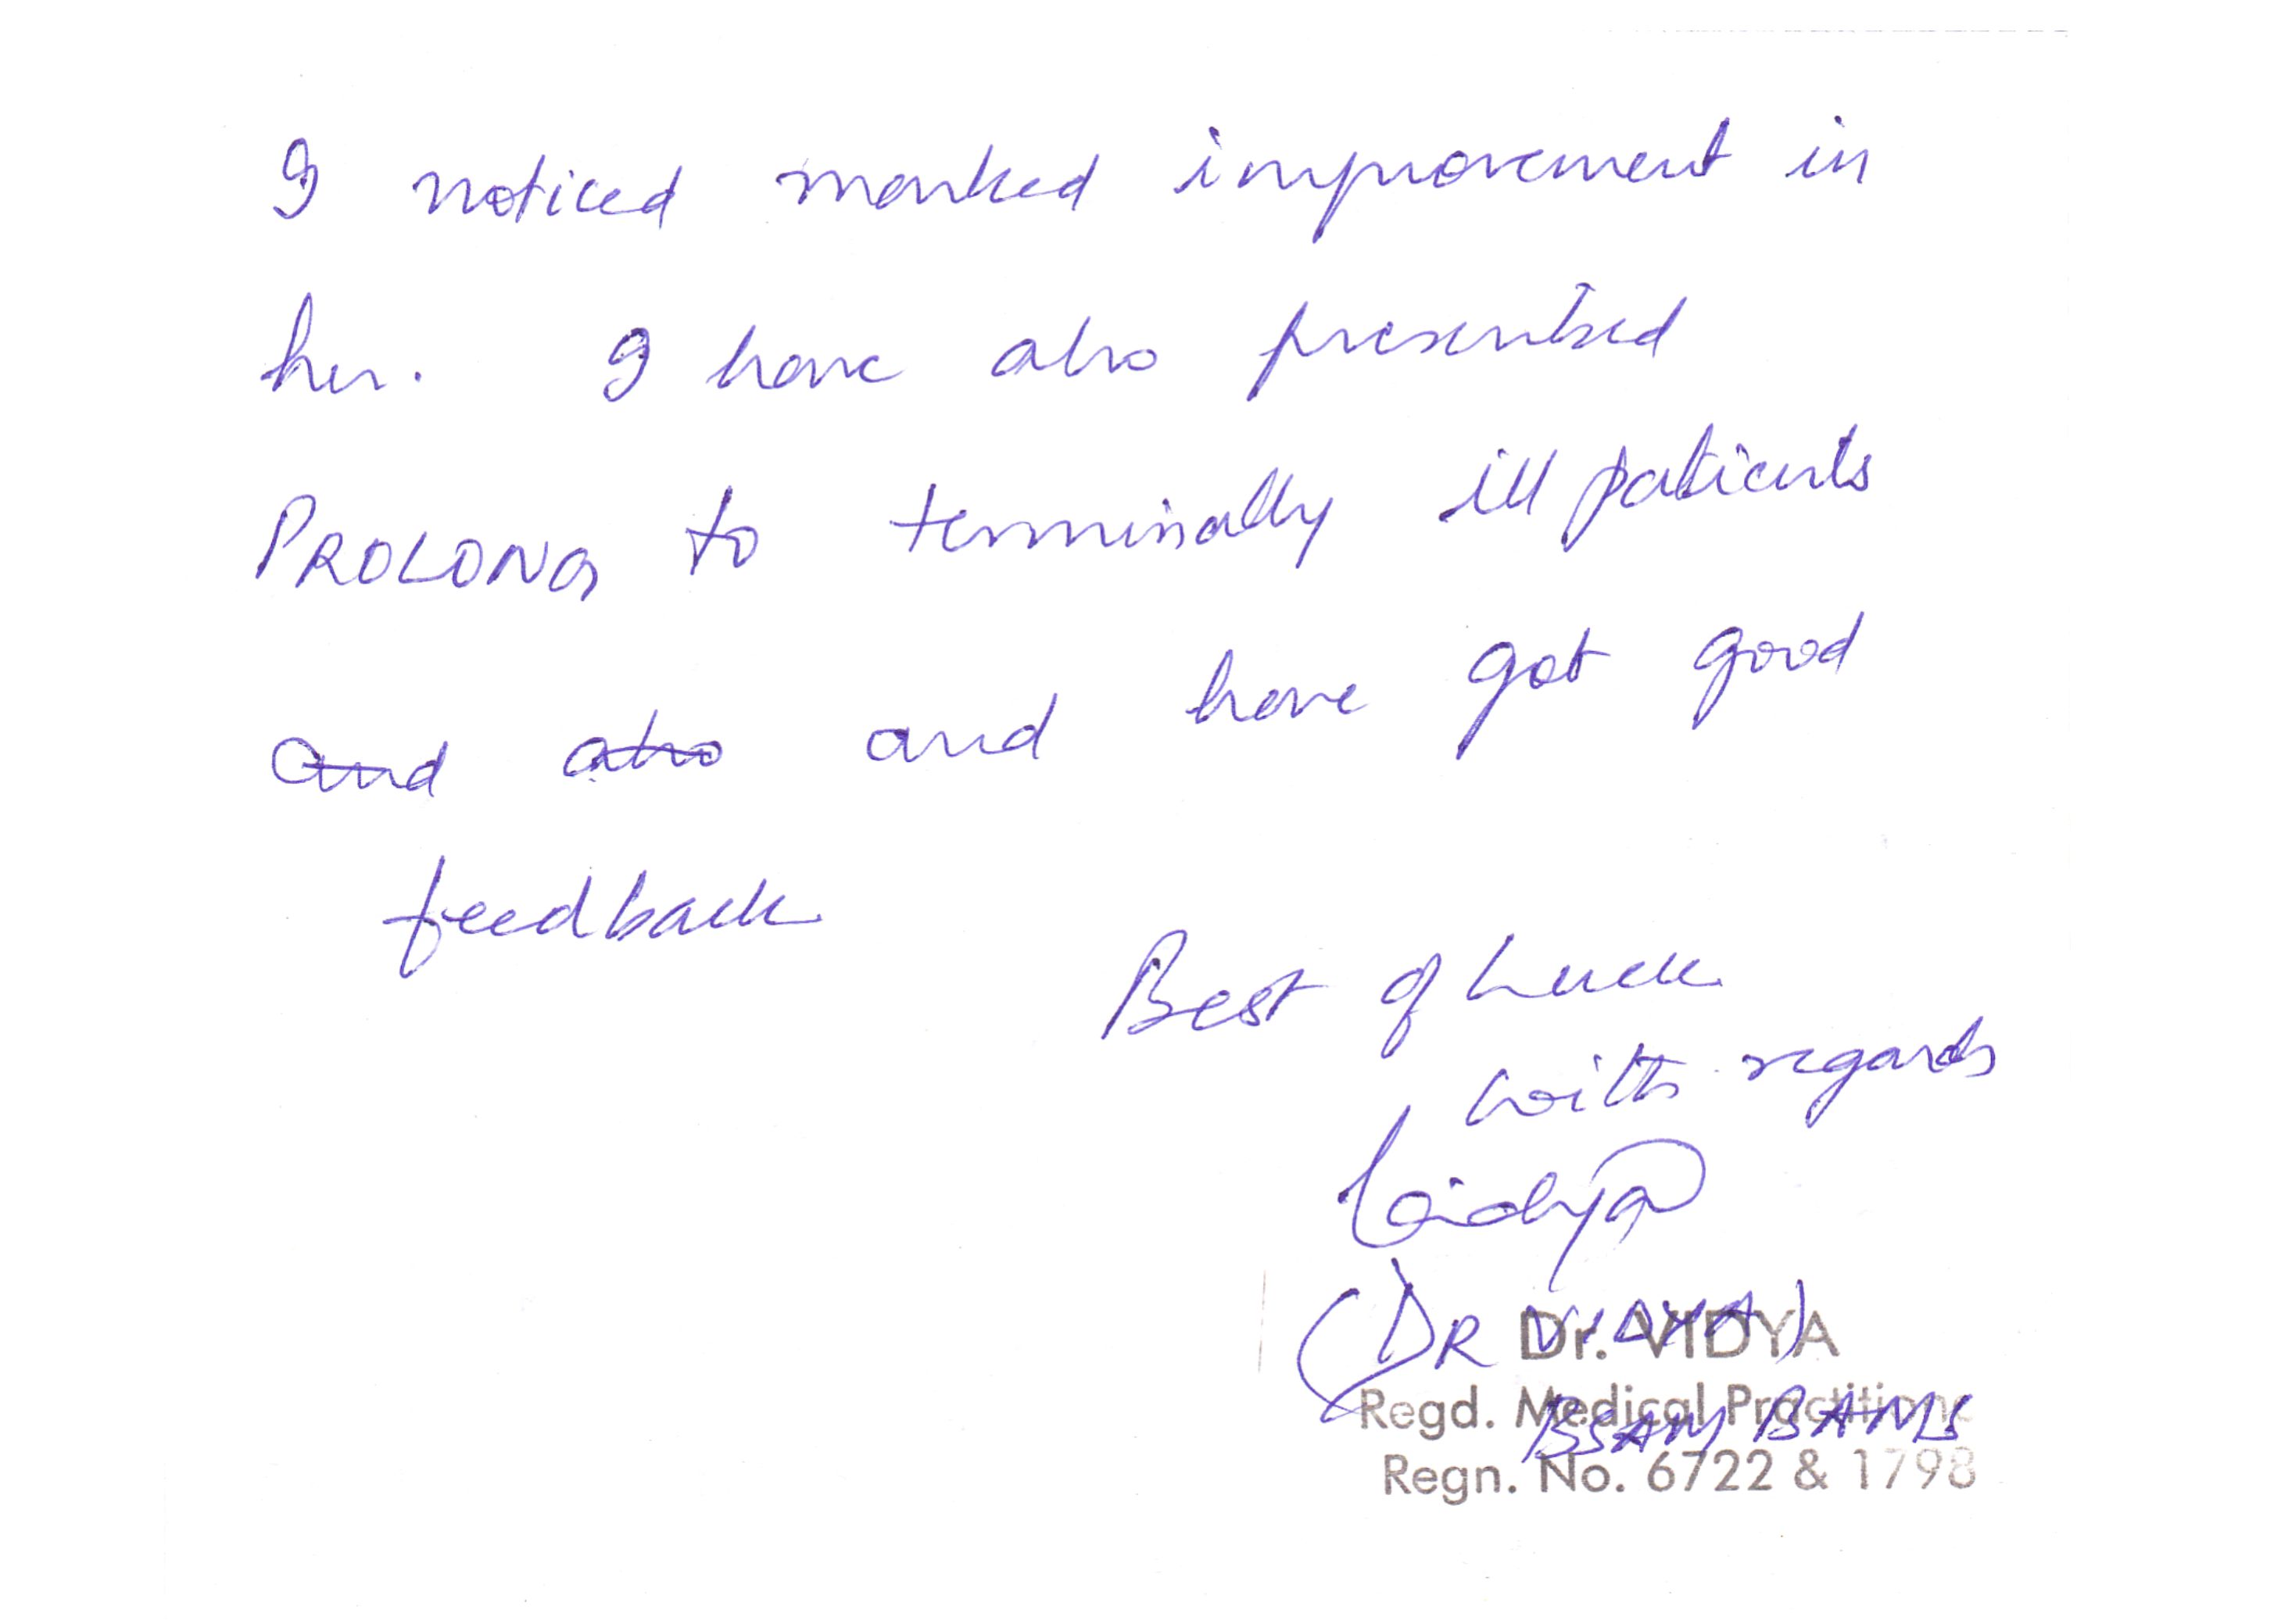 I noticed marked improvement in
her. I have also prescribed
PROLONG to terminally ill patients
and also and have got good
feedback
Best of Luck
with regards
Vaidya
(DR VIDYA)
Dr. VIDYA
Regd. Medical Practitione
BSAM BAMS
Regn. No. 6722 & 1798